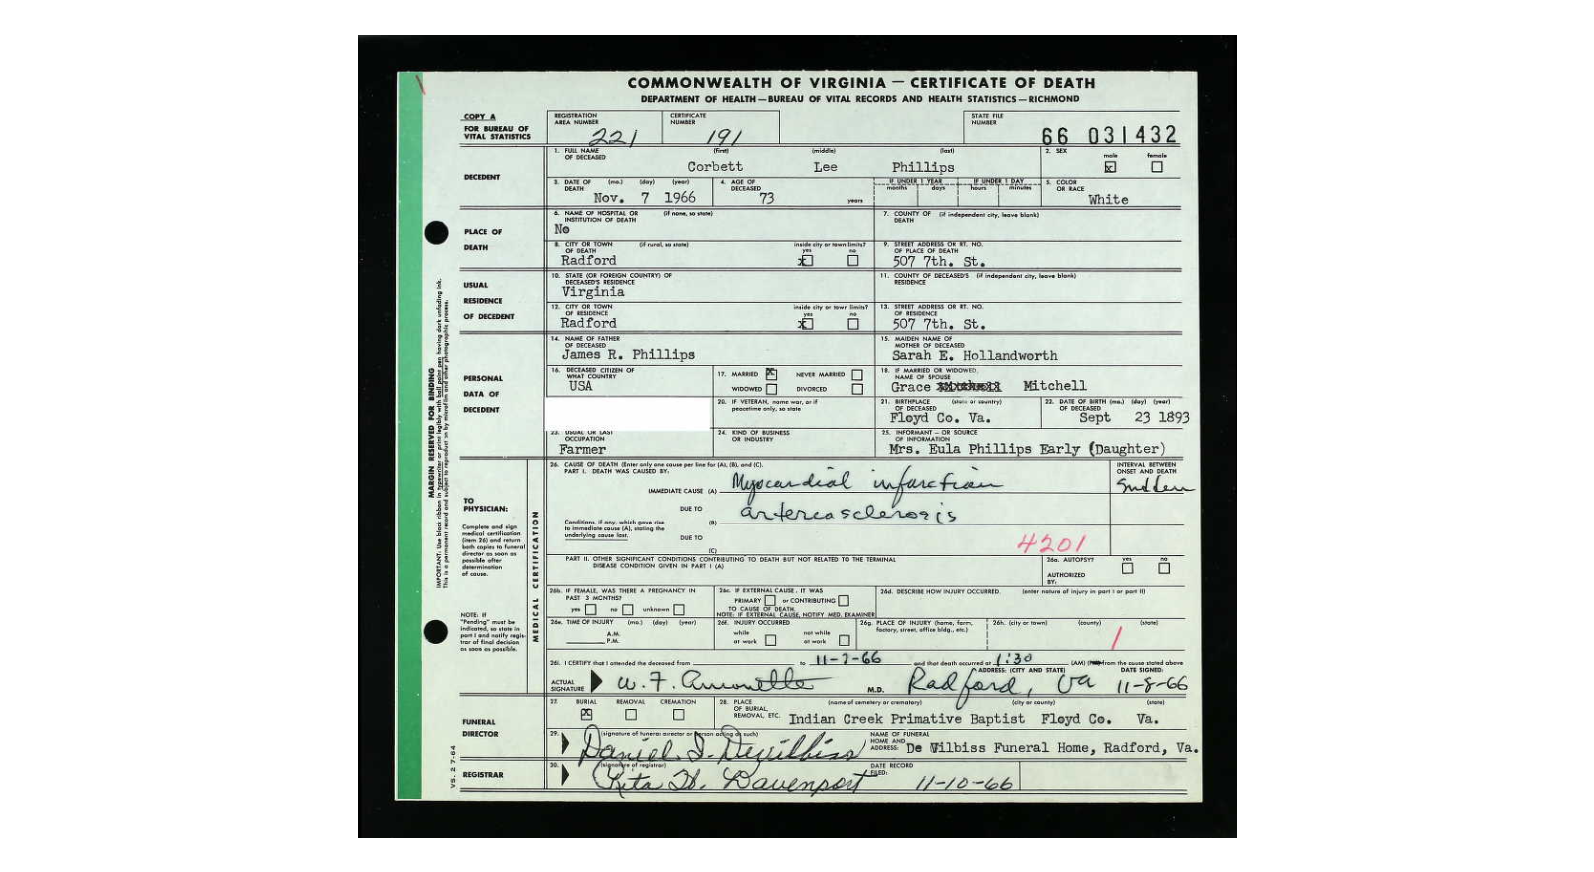 COMMONWEALTH OF VIRGINIA — CERTIFICATE OF DEATH
DEPARTMENT OF HEALTH—BUREAU OF VITAL RECORDS AND HEALTH STATISTICS—RICHMOND
COPY A
FOR BUREAU OF
VITAL STATISTICS
REGISTRATION
AREA NUMBER
221
CERTIFICATE
NUMBER
191
STATE FILE
NUMBER
66 031432
DECEDENT
1. FULL NAME
OF DECEASED
(first) (middle) (last)
Corbett Lee Phillips
2. SEX
male female
x
3. DATE OF (mo.) (day) (year)
DEATH
Nov. 7 1966
4. AGE OF
DECEASED
73 years
IF UNDER 1 YEAR IF UNDER 1 DAY
months days hours minutes
5. COLOR
OR RACE
White
PLACE OF
DEATH
6. NAME OF HOSPITAL OR (if none, so state)
INSTITUTION OF DEATH
No
7. COUNTY OF (if independent city, leave blank)
DEATH
8. CITY OR TOWN (if rural, so state)
OF DEATH
inside city or town limits?
yes no
Radford x
9. STREET ADDRESS OR RT. NO.
OF PLACE OF DEATH
507 7th. St.
USUAL
RESIDENCE
OF DECEDENT
10. STATE (OR FOREIGN COUNTRY) OF
DECEASED'S RESIDENCE
Virginia
11. COUNTY OF DECEASED'S (if independent city, leave blank)
RESIDENCE
12. CITY OR TOWN
OF RESIDENCE
inside city or town limits?
yes no
Radford x
13. STREET ADDRESS OR RT. NO.
OF RESIDENCE
507 7th. St.
PERSONAL
DATA OF
DECEDENT
14. NAME OF FATHER
OF DECEASED
James R. Phillips
15. MAIDEN NAME OF
MOTHER OF DECEASED
Sarah E. Hollandworth
16. DECEASED CITIZEN OF
WHAT COUNTRY
USA
17. MARRIED x NEVER MARRIED
WIDOWED DIVORCED
18. IF MARRIED OR WIDOWED,
NAME OF SPOUSE
Grace Mitchell
20. IF VETERAN, name war, or if
peacetime only, so state
21. BIRTHPLACE (state or country)
OF DECEASED
Floyd Co. Va.
22. DATE OF BIRTH (mo.) (day) (year)
OF DECEASED
Sept 23 1893
23. USUAL OR LAST
OCCUPATION
Farmer
24. KIND OF BUSINESS
OR INDUSTRY
25. INFORMANT — OR SOURCE
OF INFORMATION
Mrs. Eula Phillips Early (Daughter)
MARGIN RESERVED FOR BINDING
TO
PHYSICIAN:
Complete and sign
medical certification
(item 26) and return
both copies to funeral
director as soon as
possible after
determination
of cause.
NOTE: If
"Pending" must be
indicated, so state in
part I and notify regis-
trar of final decision
as soon as possible.
MEDICAL CERTIFICATION
26. CAUSE OF DEATH (Enter only one cause per line for (A), (B), and (C).
PART I. DEATH WAS CAUSED BY:
INTERVAL BETWEEN
ONSET AND DEATH
IMMEDIATE CAUSE (A) Myocardial infarction
Sudden
DUE TO
(B) arterasclerosis
Conditions, if any, which gave rise
to immediate cause (A), stating the
underlying cause last.
DUE TO
(C)
4201
PART II. OTHER SIGNIFICANT CONDITIONS CONTRIBUTING TO DEATH BUT NOT RELATED TO THE TERMINAL
DISEASE CONDITION GIVEN IN PART I (A)
26a. AUTOPSY? yes no
AUTHORIZED
BY:
26b. IF FEMALE, WAS THERE A PREGNANCY IN
PAST 3 MONTHS?
yes no unknown
26c. IF EXTERNAL CAUSE, IT WAS
PRIMARY or CONTRIBUTING
TO CAUSE OF DEATH.
NOTE: IF EXTERNAL CAUSE, NOTIFY MED. EXAMINER
26d. DESCRIBE HOW INJURY OCCURRED. (enter nature of injury in part I or part II)
26e. TIME OF INJURY (mo.) (day) (year)
A.M.
P.M.
26f. INJURY OCCURRED
while not while
at work at work
26g. PLACE OF INJURY (home, farm,
factory, street, office bldg., etc.)
26h. (city or town) (county) (state)
26i. I CERTIFY that I attended the deceased from to 11-7-66 and that death occurred at 1:30 (AM) from the cause stated above
ACTUAL
SIGNATURE
W. F. Amonette M.D.
ADDRESS: (CITY AND STATE)
Radford, Va
DATE SIGNED:
11-8-66
FUNERAL
DIRECTOR
27. BURIAL REMOVAL CREMATION
x
28. PLACE
OF BURIAL,
REMOVAL, ETC.
(name of cemetery or crematory) (city or county) (state)
Indian Creek Primative Baptist Floyd Co. Va.
29. (signature of funeral director or person acting as such)
Daniel I. Dewilbiss
NAME OF FUNERAL
HOME AND
ADDRESS:
De Wilbiss Funeral Home, Radford, Va.
REGISTRAR
30. (signature of registrar)
Rita W. Davenport
DATE RECORD
FILED:
11-10-66